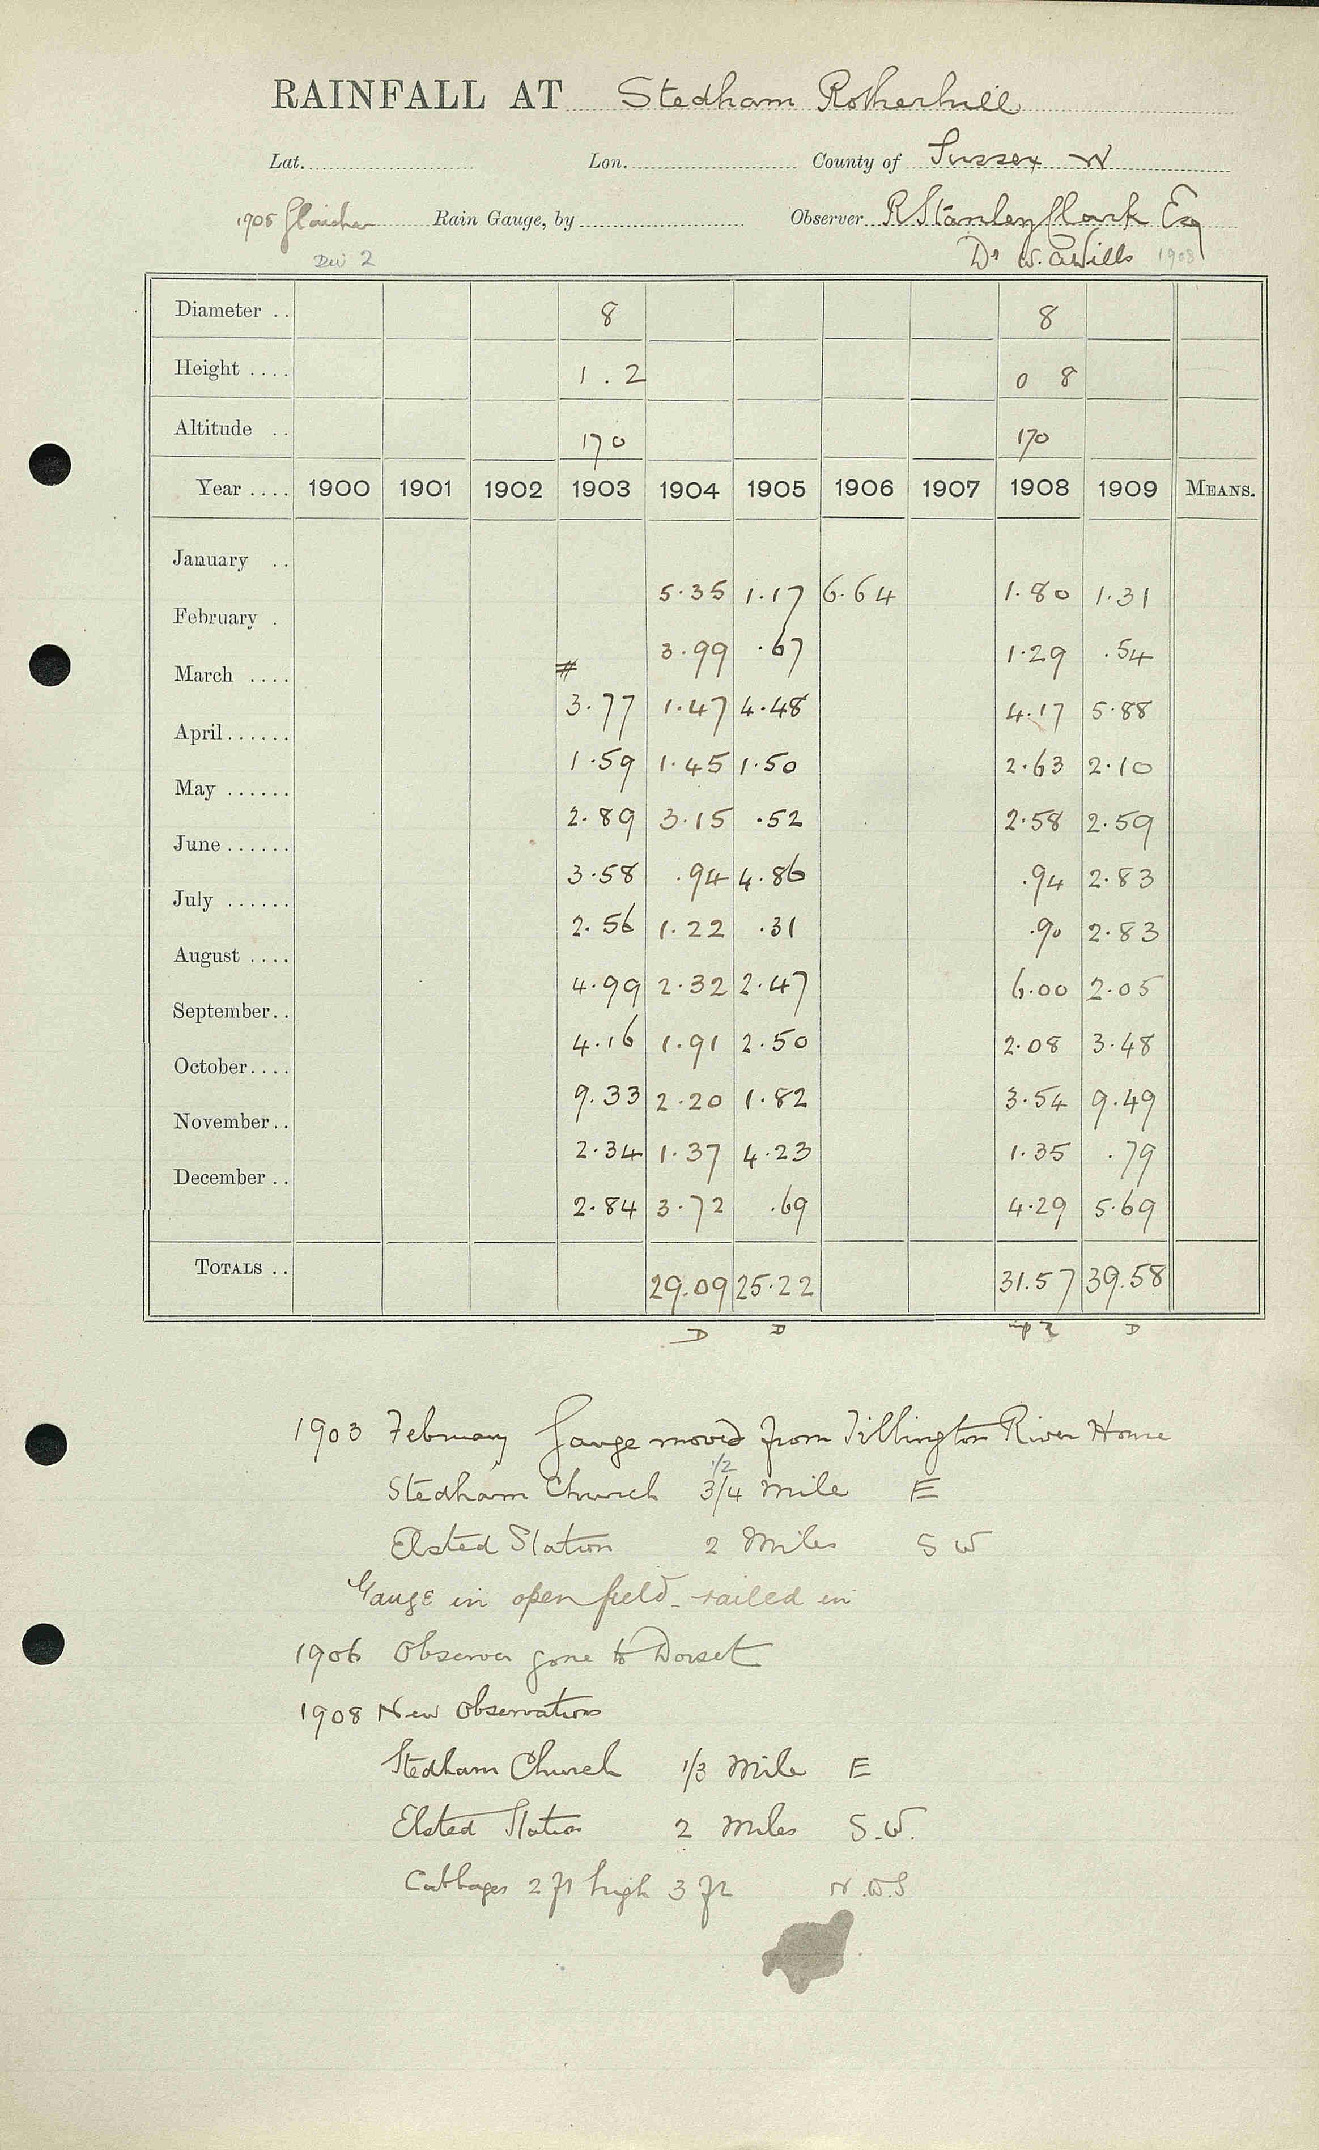 RAINFALL AT Stedham Rotherhill
Lat. Lon. County of Sussex W
1908 Glaisher Rain Gauge, by Observer R Stanley Clark Esq
Dev 2 Dr W. A Wills 1908
Diameter . . 8 8
Height . . . . 1 . 2 0 8
Altitude . . 170 170
Year . . . . 1900 1901 1902 1903 1904 1905 1906 1907 1908 1909 MEANS.
January . . 5.35 1.17 6.64 1.80 1.31
February . 3.99 .67 1.29 .54
March . . . . # 3.77 1.47 4.48 4.17 5.88
April . . . . . . 1.59 1.45 1.50 2.63 2.10
May . . . . . . 2.89 3.15 .52 2.58 2.59
June . . . . . . 3.58 .94 4.86 .94 2.83
July . . . . . . 2.56 1.22 .31 .90 2.83
August . . . . 4.99 2.32 2.47 6.00 2.05
September. . 4.16 1.91 2.50 2.08 3.48
October. . . . 9.33 2.20 1.82 3.54 9.49
November. . 2.34 1.37 4.23 1.35 .79
December . . 2.84 3.72 .69 4.29 5.69
TOTALS . . 29.09 25.22 31.57 39.58
D D D
1903 February Gauge moved from Tillington River House
Stedham Church 3/4 1/2 mile E
Elsted Station 2 Miles S W
Gauge in open field - railed in
1906 Observer gone to Dorset
1908 New Observations
Stedham Church 1/3 Mile E
Elsted Station 2 Miles S.W.
Cabbages 2 ft high 3 ft N.W.S